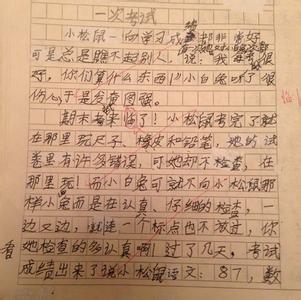 一次考试
小松鼠一向学习成绩都非常好
可是总是瞧不起别人，说：我每次考
好，你们算什么东西！小白兔听了很
伤心于是发奋图强。
期末考来临了！小松鼠考完了就
在那里玩尺子、橡皮和铅笔，她的试
卷里有许多错误，可她却不检查，在
那里玩！而小白兔可就不向小松鼠那
样小兔而是在认真、仔细的检查，一
边又边，就连一个标点也不放过，你
看她检查的多认真啊！过了几天，考试
成绩出来了说小松鼠语文：87，数